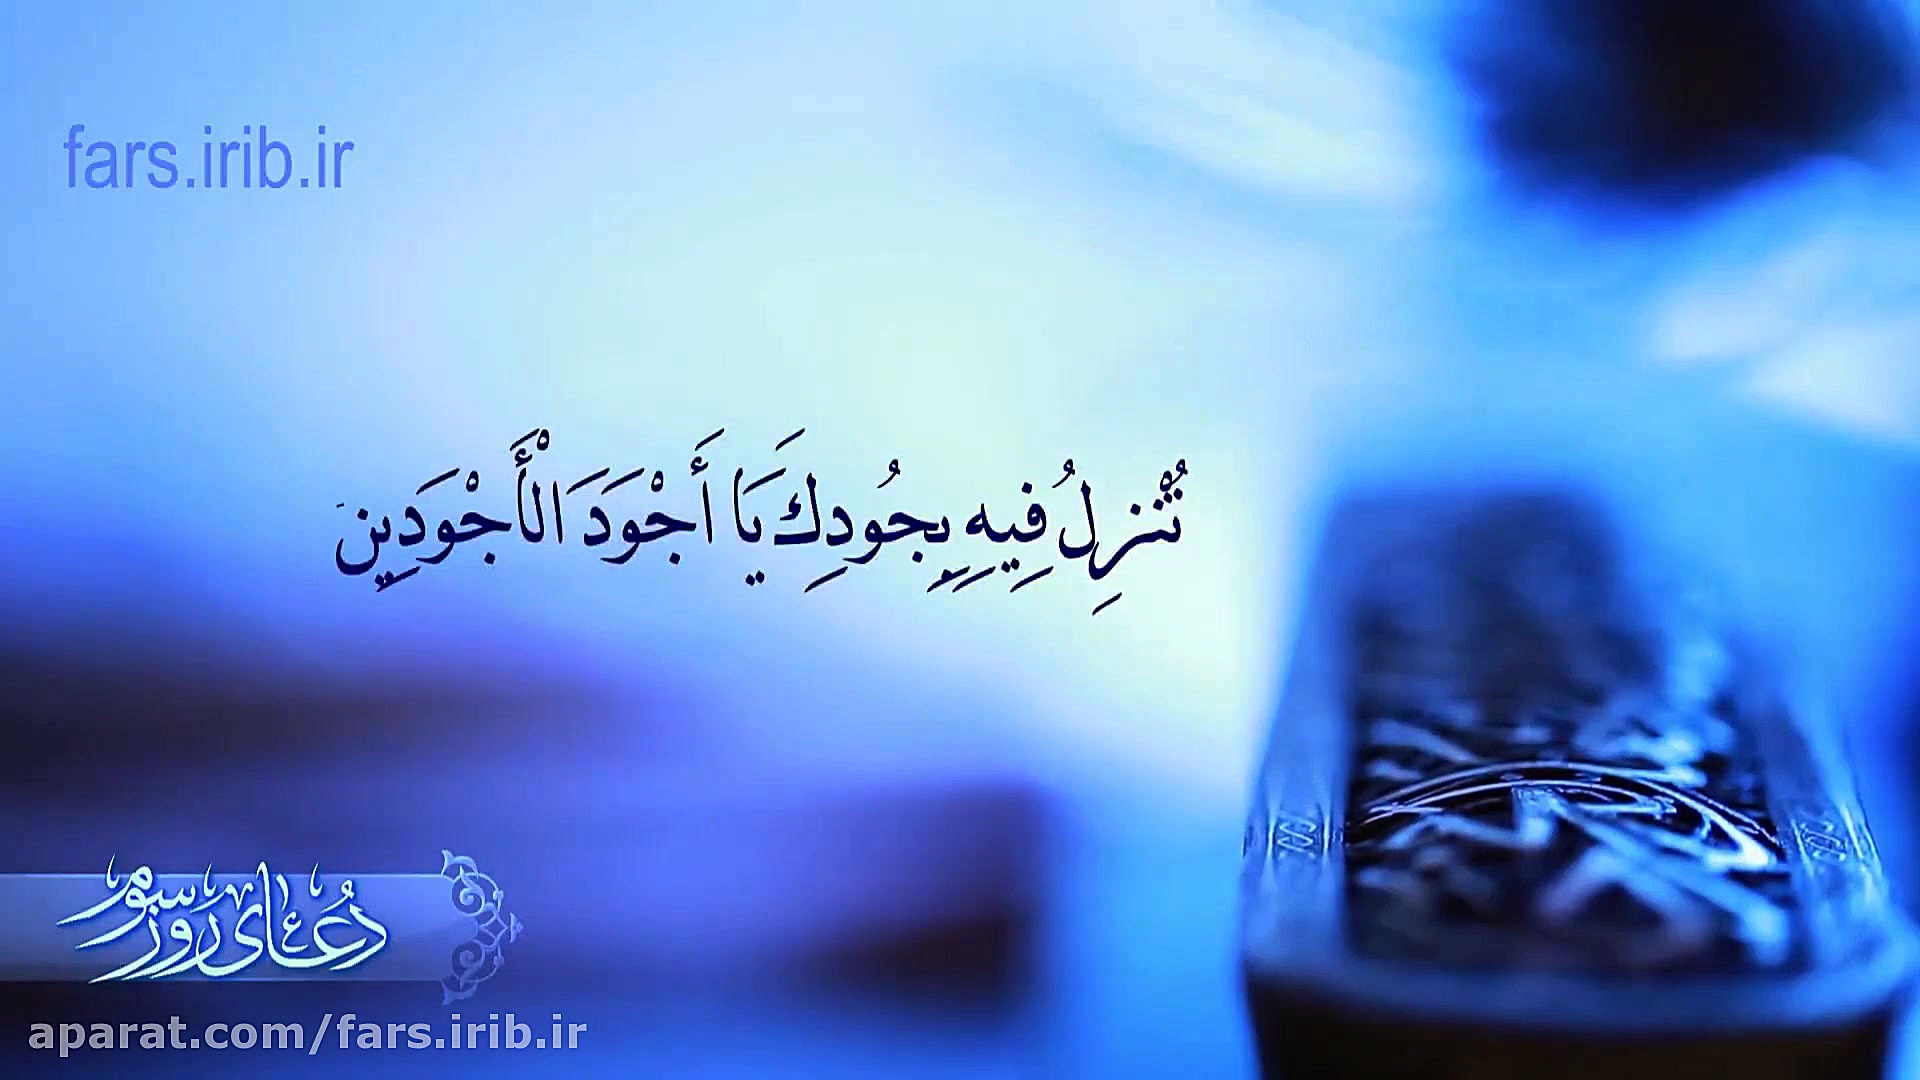 fars.irib.ir
تُنْزِلُ فِيهِ بِجُودِكَ يَا أَجْوَدَ الْأَجْوَدِينَ
دُعای روز سوم
aparat.com/fars.irib.ir